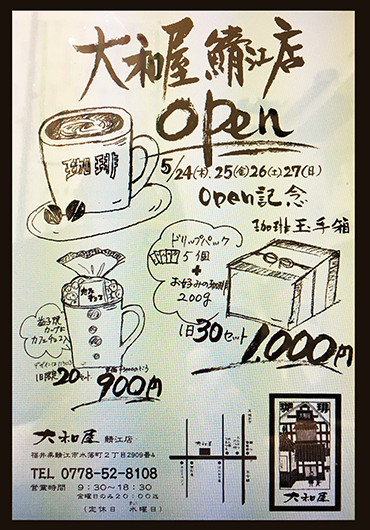 大和屋 鯖江店
open
珈琲
5/24(木).25(金)26(土)27(日)
Open記念
珈琲玉手箱
ドリップパック
5個
+
お好みの珈琲
200g
1日30セット
1,000円
カフェチョコ
益子焼
カップに
カフェチョコ入
1日限定20セット
900円
大和屋 鯖江店
福井県鯖江市水落町2丁目2909番4
TEL 0778-52-8108
営業時間 9:30〜18:30
金曜日のみ20:00迄
(定休日 水曜日)
大和屋
珈琲
大和屋